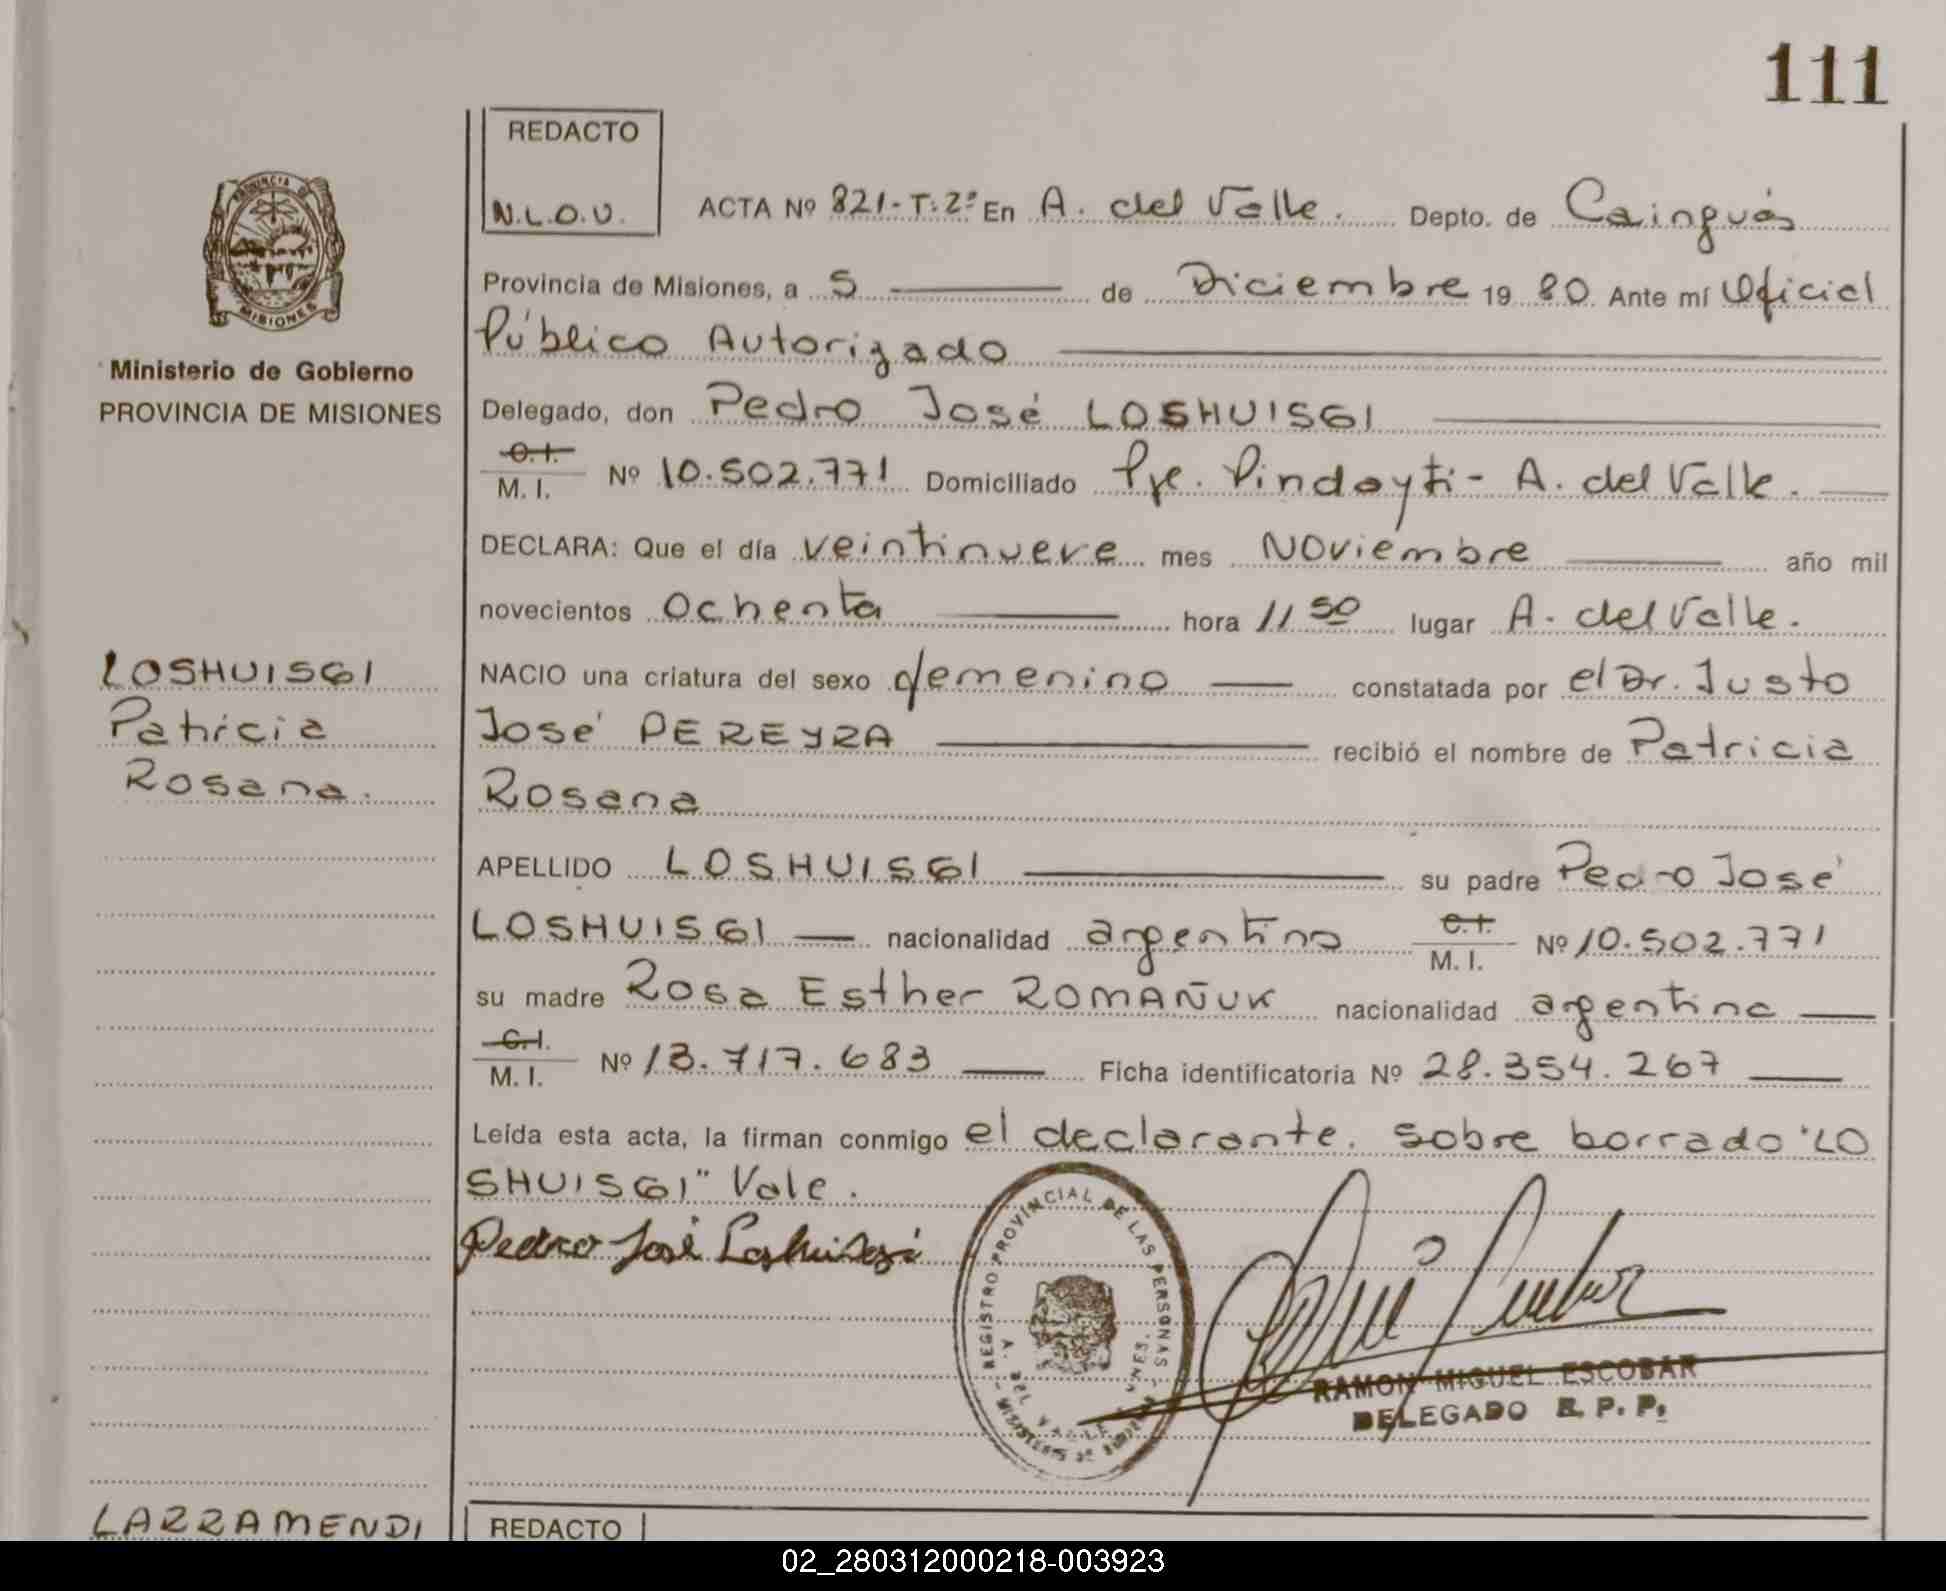 111
REDACTO
N.L.O.U.
ACTA Nº 821-T:2º En A. del Valle. Depto. de Cainguás
Provincia de Misiones, a 5 de Diciembre 19 80 Ante mí Oficial
Público Autorizado
Delegado, don Pedro José LOSHUISGI
C.I.
M. I. Nº 10.502.771 Domiciliado Pje. Pindayti - A. del Valle.
DECLARA: Que el día veintinueve mes Noviembre año mil
novecientos Ochenta hora 11 50 lugar A. del Valle.
NACIO una criatura del sexo femenino constatada por el Dr. Justo
José PEREYRA recibió el nombre de Patricia
Rosana
APELLIDO LOSHUISGI su padre Pedro José
LOSHUISGI nacionalidad argentino C.I.
M. I. Nº 10.502.771
su madre Rosa Esther ROMAÑUK nacionalidad argentina
C.I.
M. I. Nº 13.717.683 Ficha identificatoria Nº 28.354.267
Leída esta acta, la firman conmigo el declarante. Sobre borrado "LO
SHUISGI" Vale.
Pedro José Loshuisgi
REGISTRO PROVINCIAL DE LAS PERSONAS
A. DEL VALLE
RAMON MIGUEL ESCOBAR
DELEGADO R. P. P.
PROVINCIA DE
MISIONES
Ministerio de Gobierno
PROVINCIA DE MISIONES
LOSHUISGI
Patricia
Rosana.
LARRAMENDI
REDACTO
02_280312000218-003923